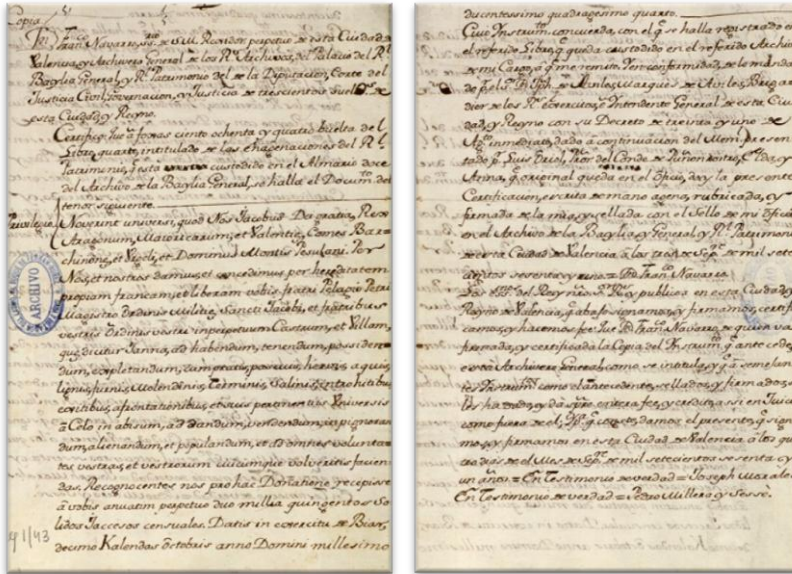 Copia
Dn. Franco. Navarro, ssrio. de S.M. Recidor perpetuo de esta Ciudad de
Valencia, y Archivero General de los Rs. Archivos, del Palacio del Rl.
Baylia General, y Rl. Patrimonio del de la Diputacion, Corte del
Justicia Civil, Governacion, y Justicia de trescientos sueldos de
esta Ciudad, y Reyno.
Certifico: Que à foxas ciento ochenta y quatro buelta del
Libro quarto, intitulado de las Enagenaciones del Rl.
Patrimonio, q. està custodido en el Almario doce
del Archivo de la Baylia General, se halla el Docum.to del
tenor siguiente.
Privilegio.
Noverint universi, quod Nos Jacobus Dei gratia, Rex
Aragonum, Maioricarum, et Valentie, Comes Bar-
chinone, et Urgelli, et Dominus Montis Pesulani. Per
Nos, et nostros damus, et concedimus per hereditatem
propiam francam, et liberam vobis fratri Pelagio Petri
Magistro Ordinis Militie Sancti Jacobi, et fratribus
vestris Ordinis vestri inperpetuum Castrum, et Villam,
que dicitur Janna, ad habendum, tenendum, possiden-
dum, expletandum, cum pratis, pascuis, herbis, aquis,
lignis, furnis, Molendinis, Terminis, Salinis, introhitibus
exitibus, afrontationibus, et suis pertinentiis Universis
à Celo in abisum, ad dandum, vendendum, in pignoran-
dum, alienandum, et populandum, et ad omnes volunta-
tes vestras, et vestrorum cuicumque volveritis facien-
das. Recognocentes nos pro hac Donatione recepisse
à vobis annatim perpetuo duo millia quingentos So-
lidos Jaccesos censuales. Datis in exercitu de Biar,
decimo Kalendas Octobris anno Domini millesimo
91/93
ARCHIVO
ducentessimo quadragesimo quarto.
Cuio Instrum.to concuerda, con el q. se halla registrado en
el referido Libro, q. queda custodido en el referido Archivo
de mi Cargo, à q. me remito. Y en conformidad, de lo manda-
do p. el Sr. Dn. Jph. de Aviles, Marqués de Aviles, Briga-
dier de los Rs. Exercitos, è Intendente General de esta Ciu-
dad, y Reyno con su Decreto de treinta y uno de
Ag.to inmediato, dado a continuacion del Mem.l presen-
tado p. Luis Oriol, Pror. del Conde de Cerda, y
Anna, q. original queda en el Oficio, doy la presente
Certificacion, escrita de mano agena, rubricada, y
firmada de la mia, y sellada con el Sello de mi Oficio
en el Archivo de la Baylia General, y Rl. Patrimonio
de esta Ciudad de Valencia à los tres de Sepre. de mil sete-
cientos sesenta y uno = Dn. Franco. Navarro
Los del Rey nro. Sr. y publicos en esta Ciudad, y
Reyno de Valencia, q. abaxo signamos, y firmamos, certifi-
camos, y hacemos fee: Que Dn. Franco. Navarro, de quien va
firmada, y certificada la Copia del Instrum.to q. antecede,
es tal Archivero General, como se intitula, y q. à semejan-
tes Instrum.tos como el antecedente, sellados, y firmados,
les ha dado, y dà entera fee, y credito, assi en Juicio
como fuera de el, Y pa. q. conste, damos el presente, q. signa-
mos, y firmamos en esta Ciudad de Valencia à los qua-
tro dias de el Mes de Sepre. de mil setecientos sesenta y
un años = En Testimonio de verdad = Joseph Morales
En Testimonio de verdad = Pedro Millera, y Sessé.